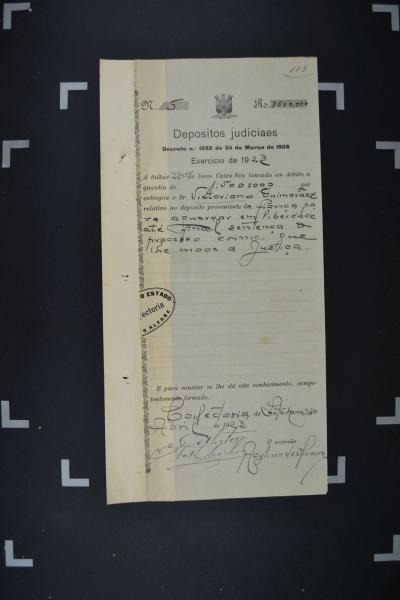 113
N. 5 Rs. 1:500.000
Depositos judiciaes
Decreto n.º 1292 de 24 de Março de 1908
Exercicio de 1923
A folhas do livro Caixa fica lançada em debito a
quantia de 1:500$000 que
entregou o Sr. Victoriano Guimarães
relativo ao deposito proveniente de fiança pa
ra aguardar em liberdade
até final sentença o
processo crime que
lhe move a Justiça.
O ESTADO
ectoria
O ALEGRE
E para constar se lhe dá este conhecimento, compe-
tentemente firmado.
Collectoria de
Abril de 1923
O escrivão